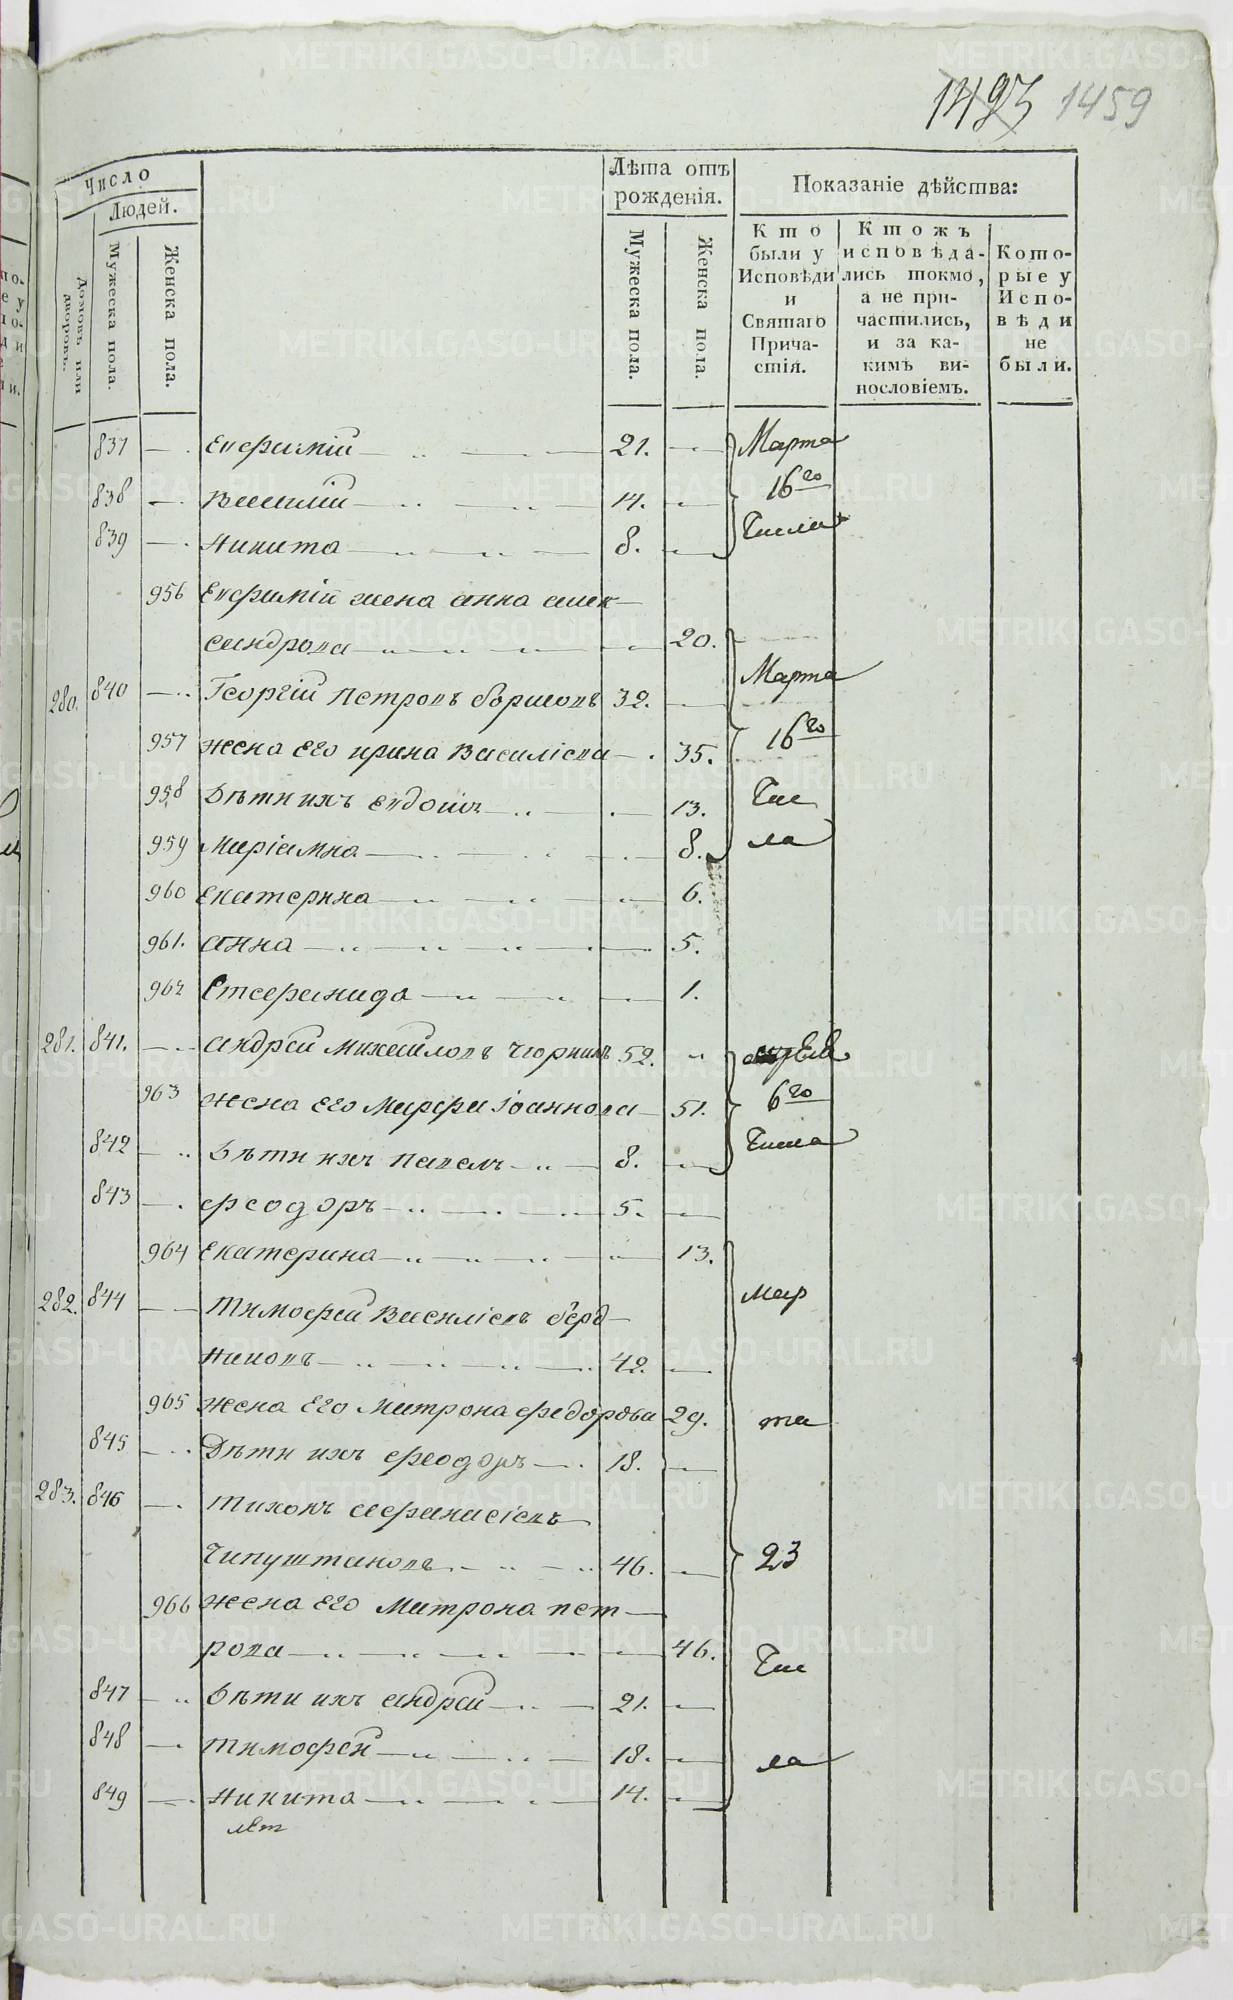 1493 1459
Число
Людей.
Домовъ или дворовъ.
Мужеска пола.
Женска пола.
Лѣта отъ рожденія.
Мужеска пола.
Женска пола.
Показаніе дѣйства:
Кто были у Исповѣди и Святаго Причастія.
Ктожъ исповѣдались токмо, а не причастились, и за какимъ винословіемъ.
Которые у Исповѣди не были.
837 Евфимій 21. Марта
838 Василій 14. 16го
839 Никита 8. Числа
956 Евфимій жена анна алек
сандрова 20.
280. 840 Георгій Петровъ борисовъ 32. Марта
957 жена Его ирина Василіева 35. 16го
958 Дѣти ихъ Евдокіа 13. Чис
959 Маріамна 8. ла
960 Екатерина 6.
961. анна 5.
962 Стефанида 1.
281. 841. андрей михайловъ 52.
963 жена Его Марфа Іоаннова 51. 6го
842 Дѣти ихъ павелъ 8. Числа
843 феодоръ 5.
964 Екатерина 13.
282. 844 тимофей Василіевъ берд
никовъ 42. мар
965 жена Его Матрона федорова 29. та
845 Дѣти ихъ феодоръ 18.
283. 846 тихонъ афанасіевъ
Чипуштановъ 46. 23
966 жена Его Матрона пет
рова 46. Чис
847 Дѣти ихъ андрей 21.
848 тимофей 18. ла
849 Никита 14.
лѣт
METRIKI.GASO-URAL.RU